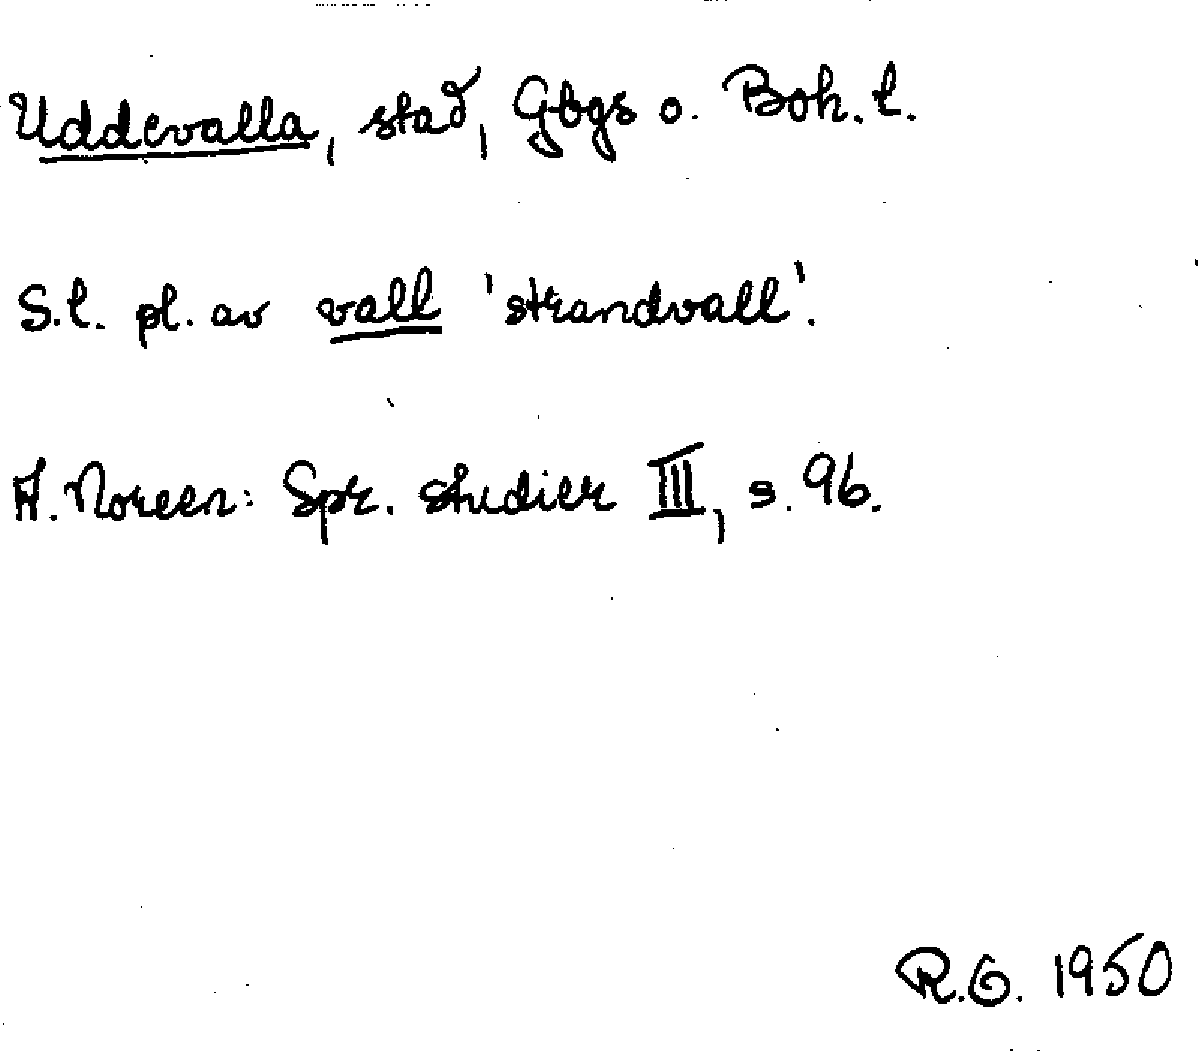 Uddevalla, stad, Gbgs o. Boh. l.
S.l. pl. av vall 'strandvall'.
A. Noreen: Spr. studier III, s. 96.
R.G. 1950